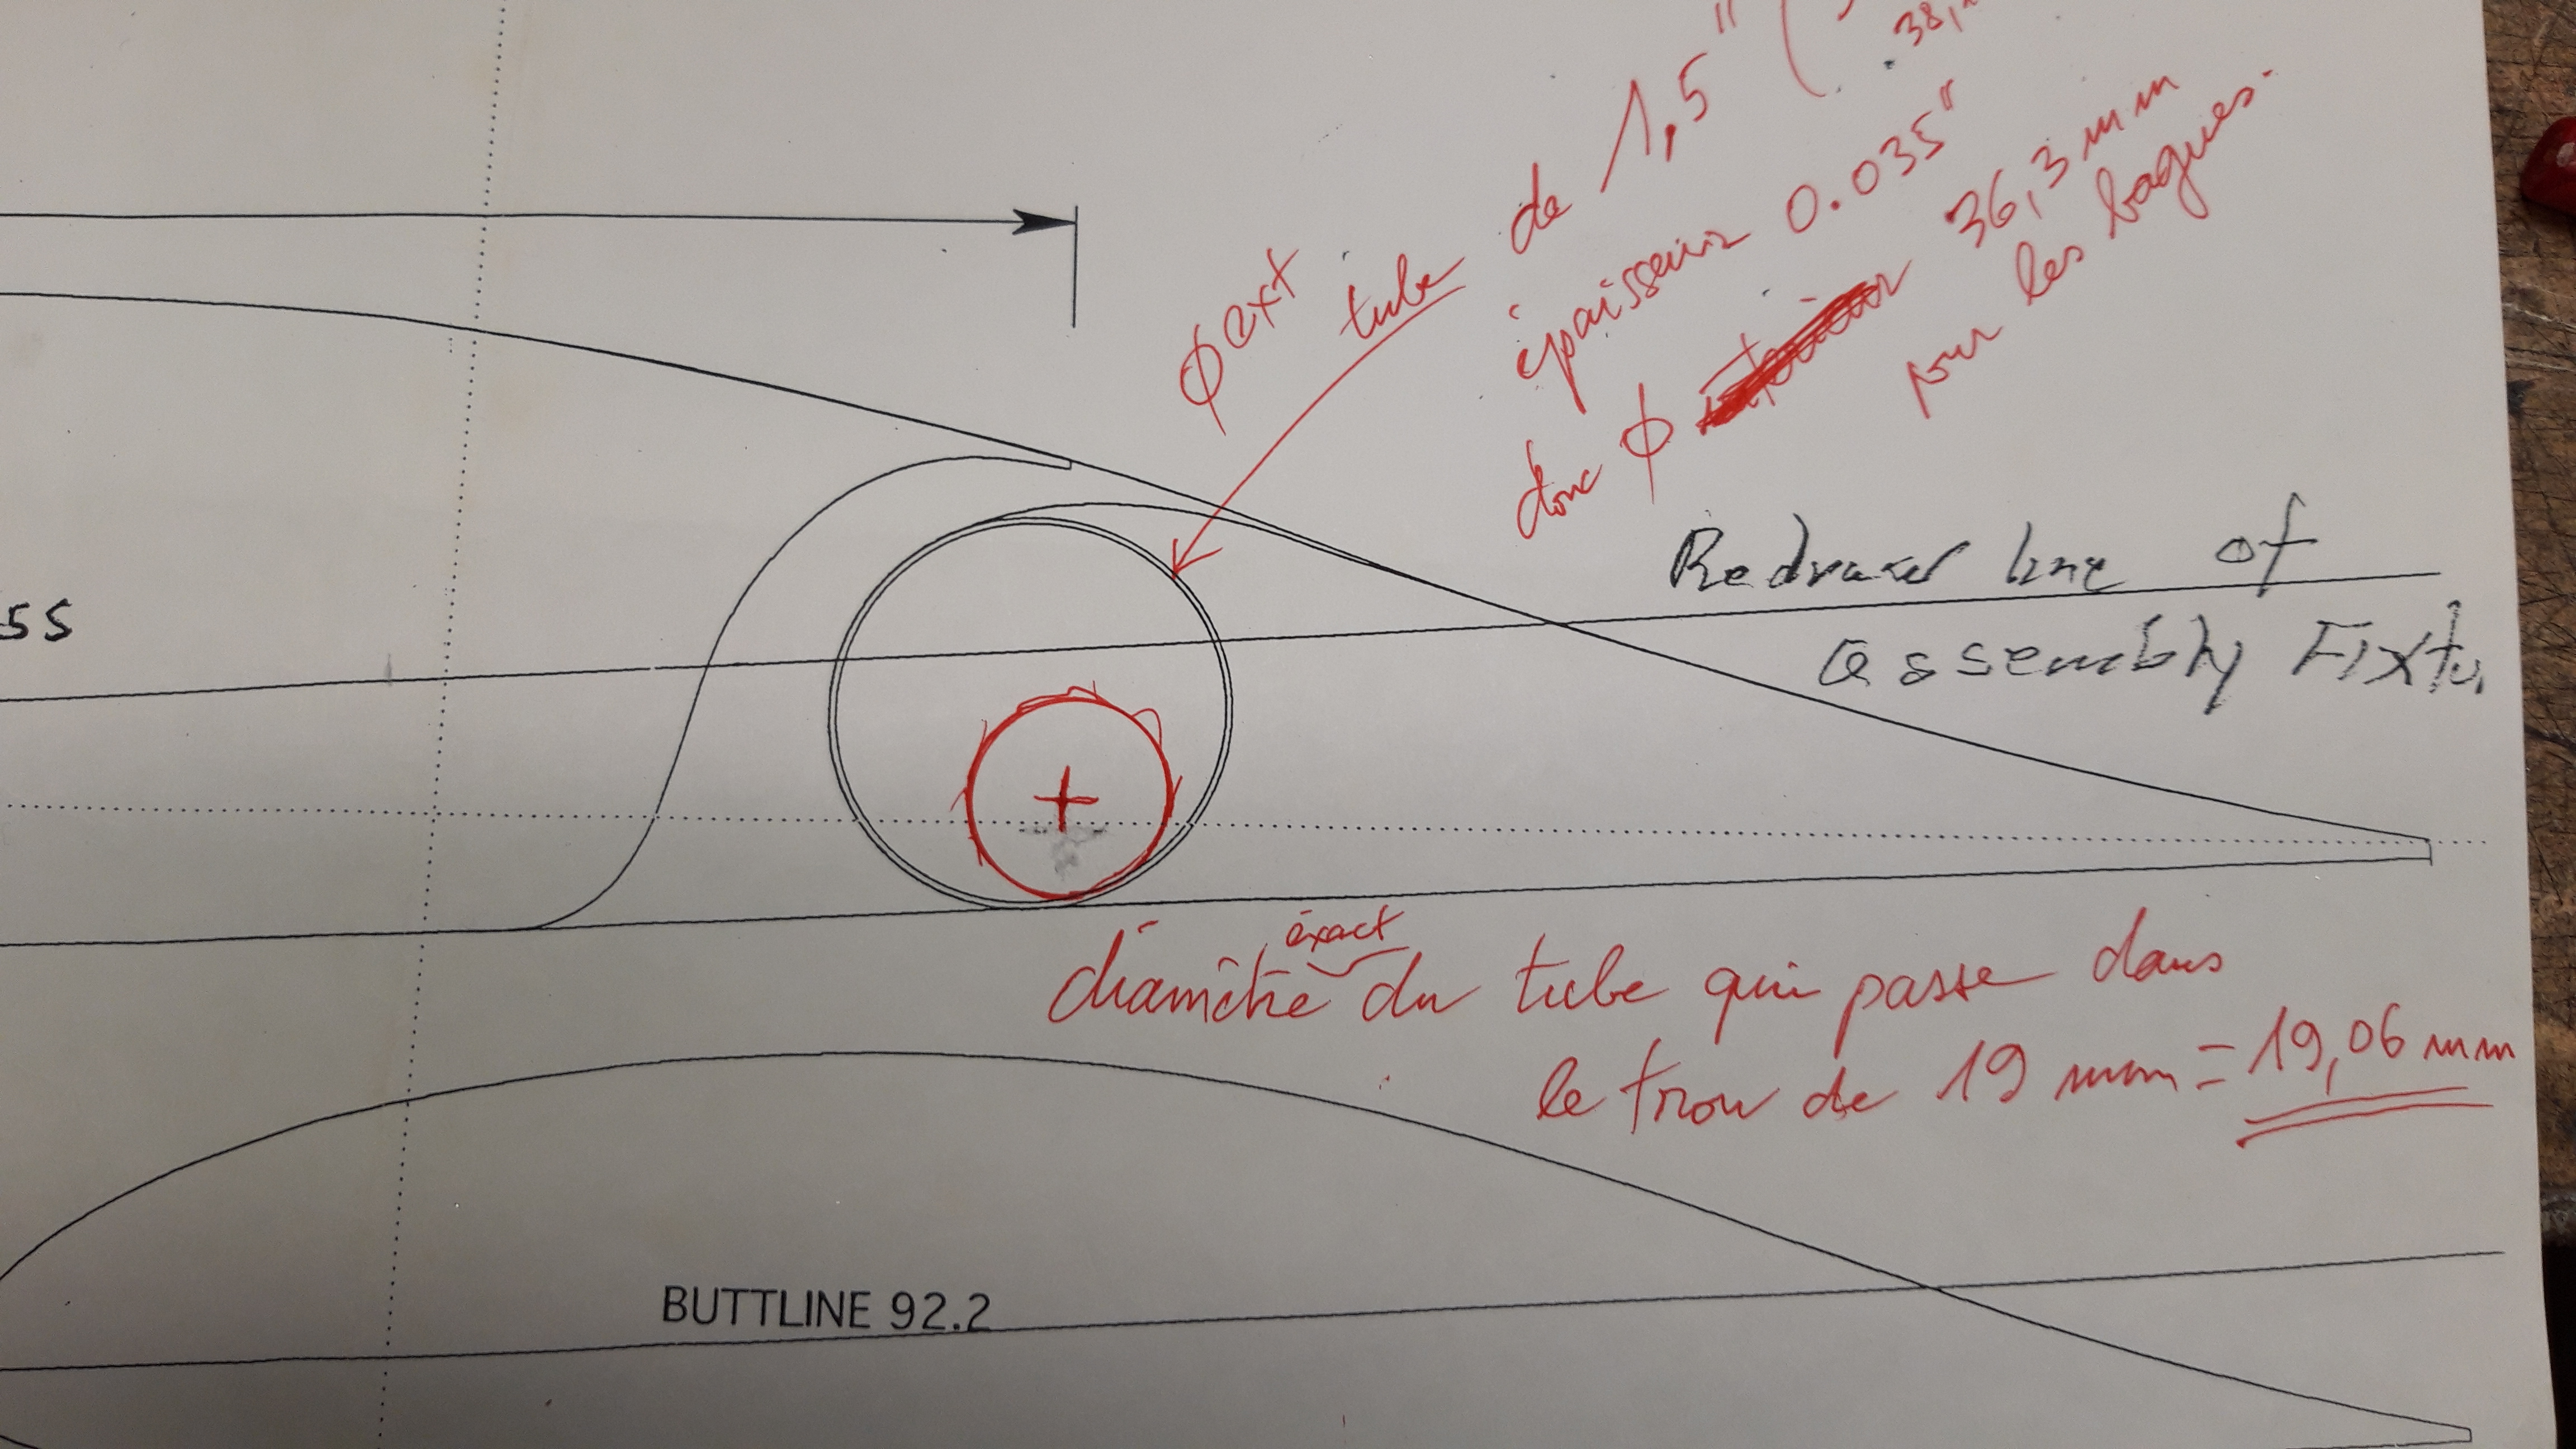 φ ext
tube de 1,5" (
38,
épaisseur 0.035"
donc φ 36,3 mm
pour les bagues.
55
Redrawn line of
assembly Fixtu
exact
diamètre du tube qui passe dans
le trou de 19 mm = 19,06 mm
BUTTLINE 92.2